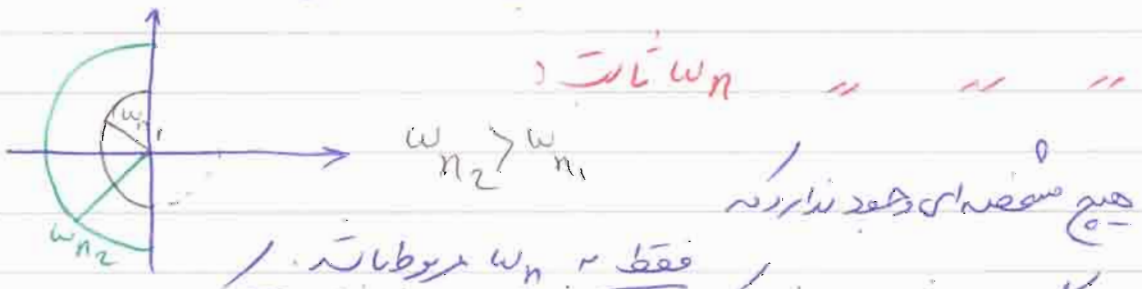 " " " ωn ثابت :
ωn1
ωn2 > ωn1
هیچ مشخصه‌ای وجود ندارد که
ωn2
فقط به ωn مربوط باشد.